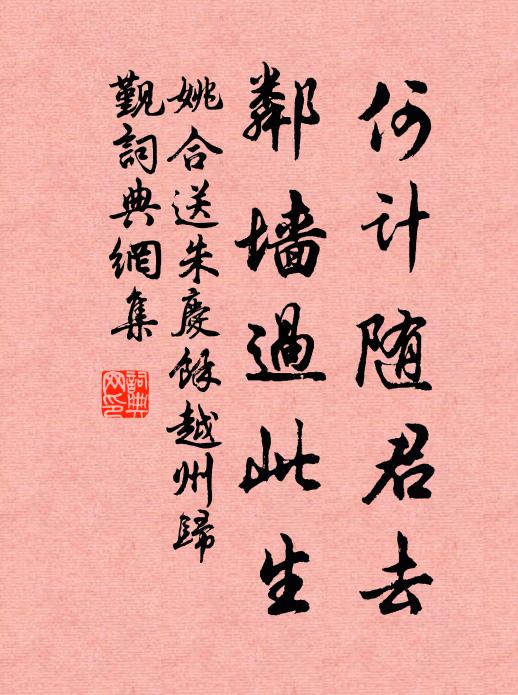 何计随君去
鄰墙過此生
姚合送朱慶餘越州歸
觐詞典網集
詞典
网印